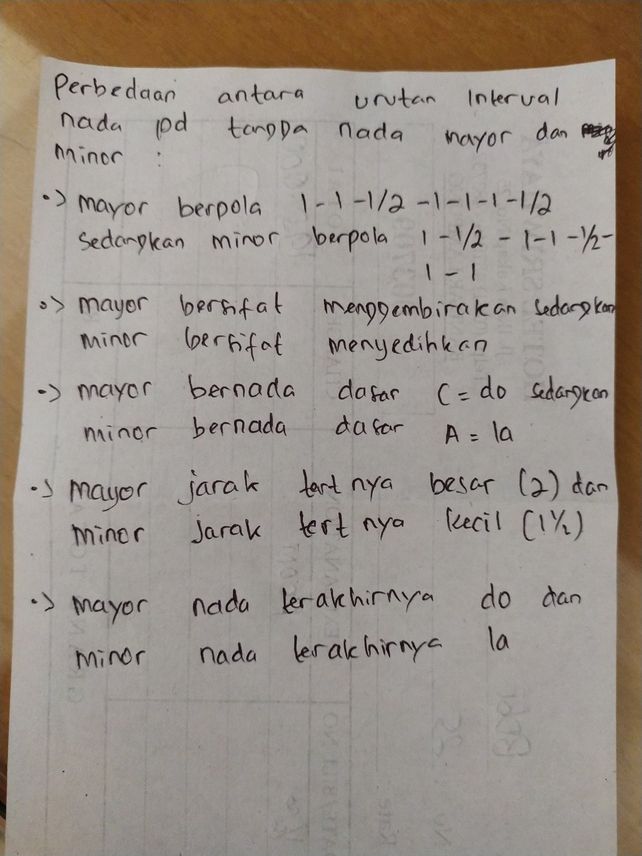 Perbedaan antara urutan Interval
nada pd tangga nada mayor dan
minor :
•> mayor berpola 1-1-1/2 -1-1-1-1/2
sedangkan minor berpola 1-1/2 - 1-1-1/2-
1-1
•> mayor bersifat menggembirakan sedangkan
minor bersifat menyedihkan
•> mayor bernada dasar C = do sedangkan
minor bernada dasar A = la
•> mayor jarak tert nya besar (2) dan
minor jarak tert nya kecil (1 1/2)
•> mayor nada terakhirnya do dan
minor nada terakhirnya la